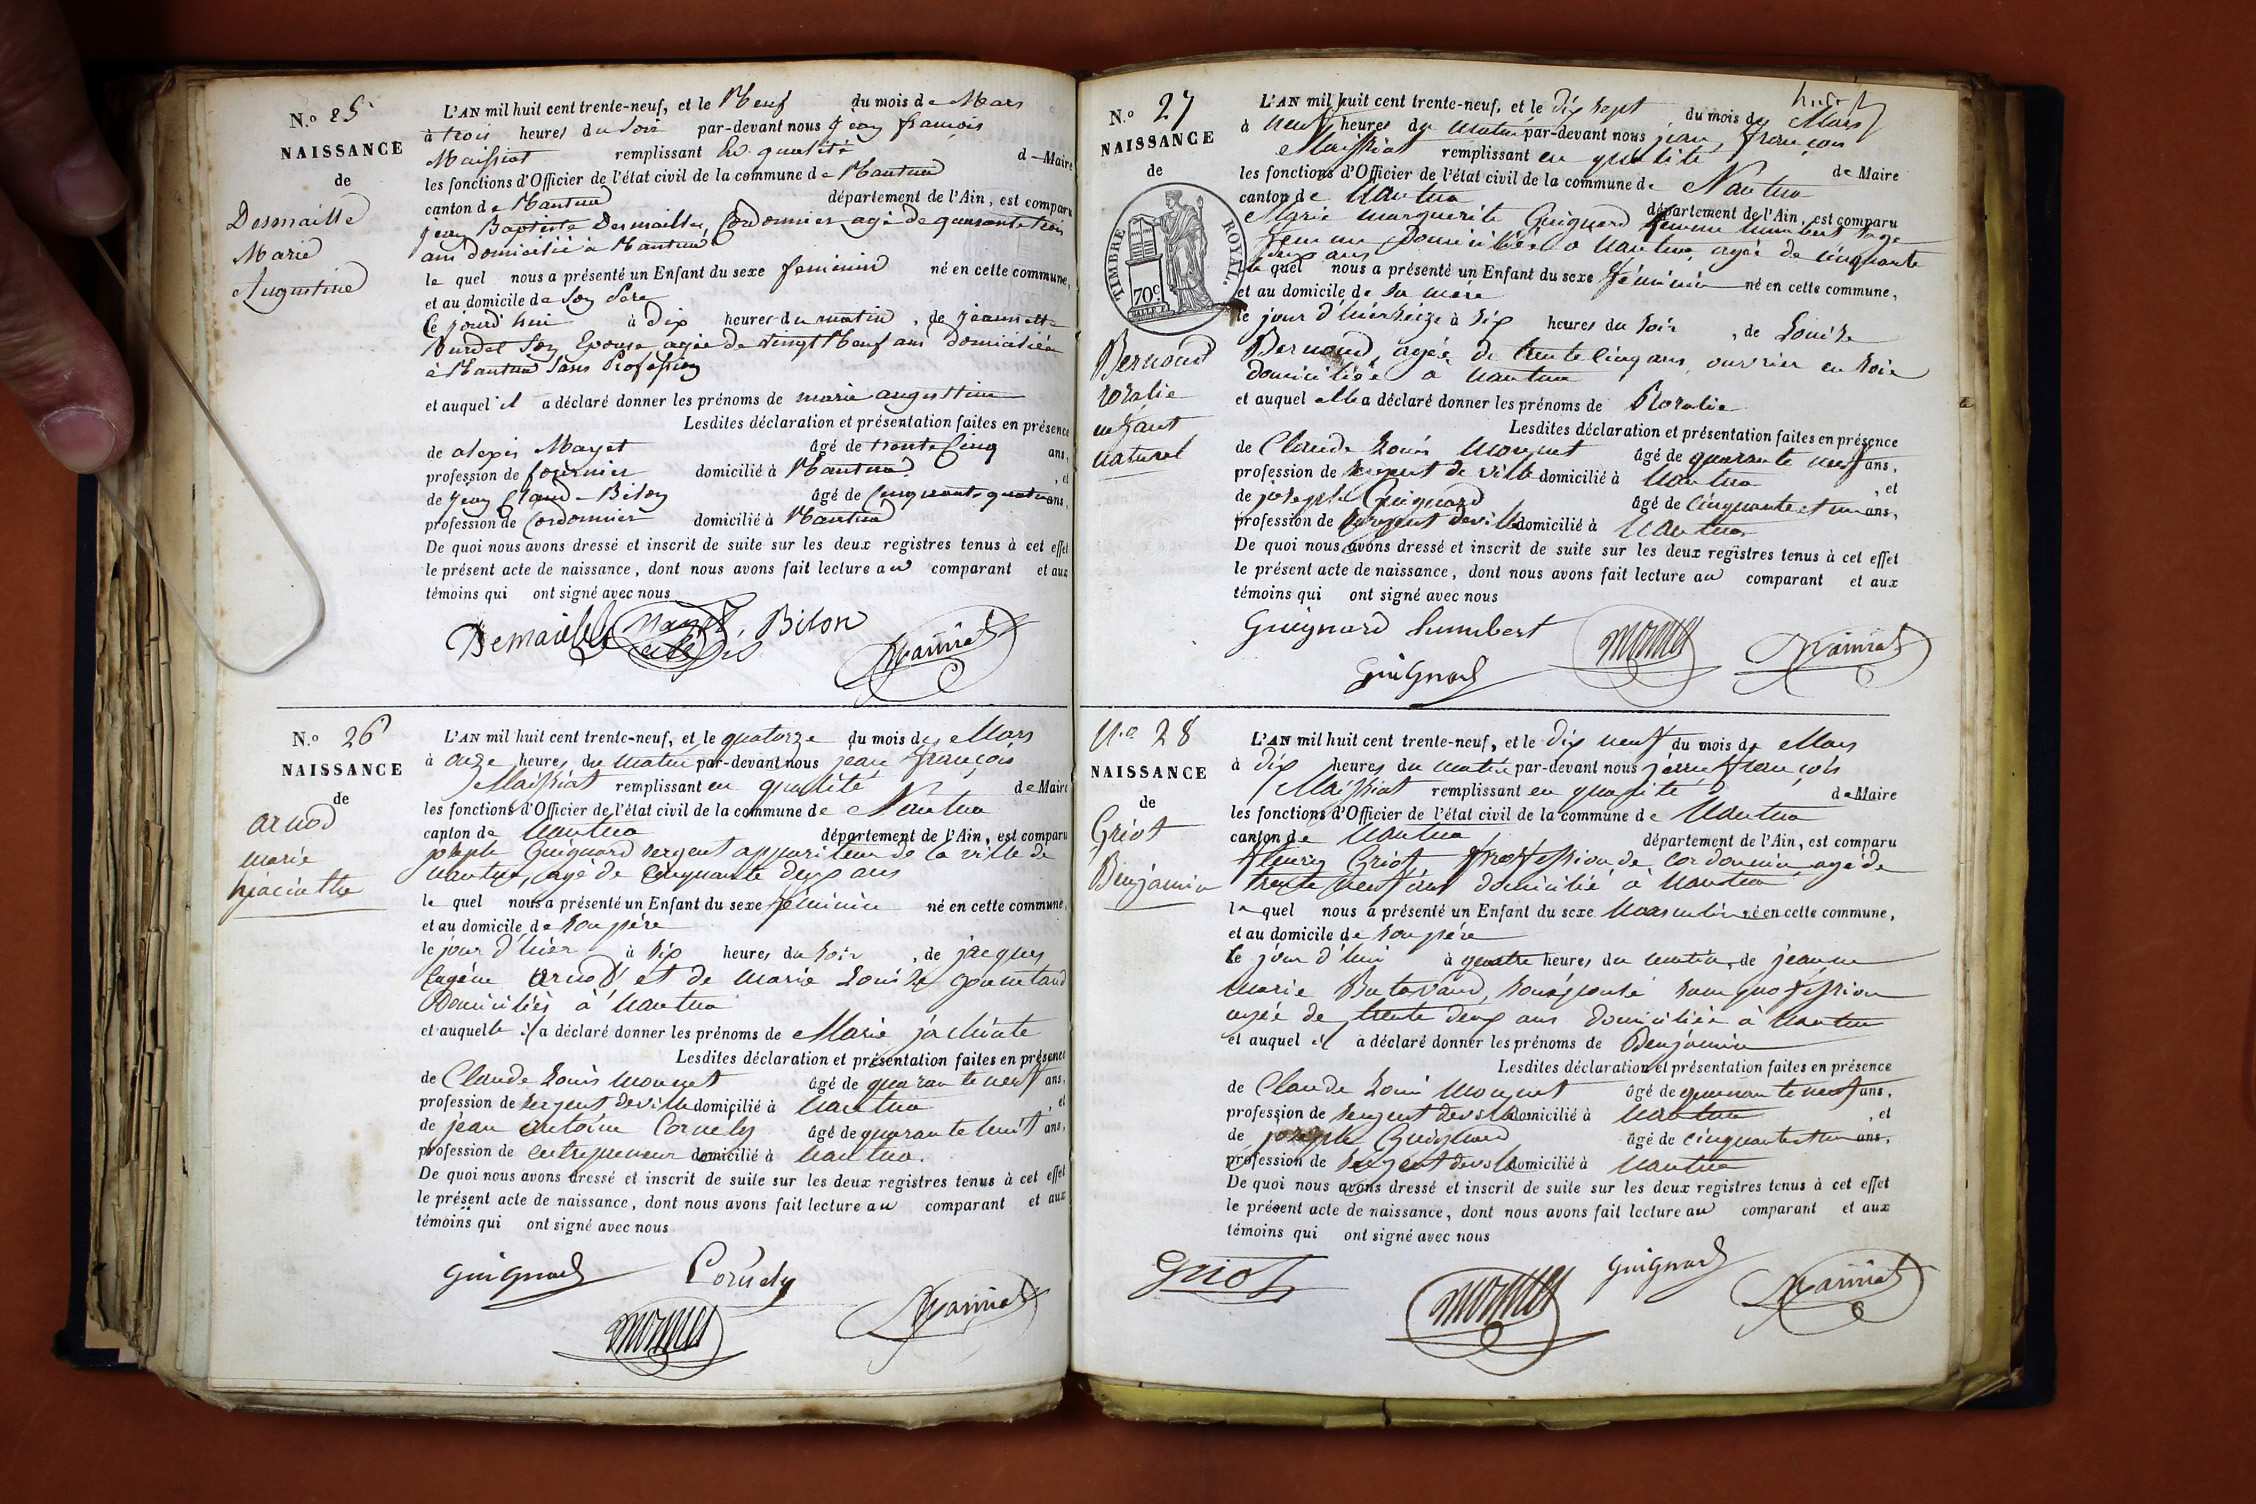 N.° 25
NAISSANCE
de
Desmaille
Marie
Augustine
L'AN mil huit cent trente-neuf, et le Neuf du mois de Mars
à trois heures du Soir par-devant nous Jean françois
Maissiat remplissant En qualité de Maire
les fonctions d'Officier de l'état civil de la commune de Nantua
canton de Nantua département de l'Ain, est comparu
Jean Baptiste Desmailles, Cordonnier agé de quarante trois
ans domicilié à Nantua
le quel nous a présenté un Enfant du sexe feminin né en cette commune,
et au domicile de Son Pere
Ce jourd'hui à dix heures du matin, de jeannette
Burdet Son Epouse agée de vingt Neuf ans domiciliée
à Nantua Sans Profession
et auquel il a déclaré donner les prénoms de marie augustine
Lesdites déclaration et présentation faites en présence
de alexis Marget âgé de trente Cinq ans,
profession de fournier domicilié à Nantua, et
de Jean Claude Bilon âgé de Cinquante quatre ans,
profession de Cordonnier domicilié à Nantua
De quoi nous avons dressé et inscrit de suite sur les deux registres tenus à cet effet
le présent acte de naissance, dont nous avons fait lecture au comparant et aux
témoins qui ont signé avec nous
Demaille Bilon
Maissiat
N.° 26
NAISSANCE
de
arnod
marie
hjacinthe
L'AN mil huit cent trente-neuf, et le quatorze du mois de Mars
à onze heures du matin par-devant nous jean françois
Maissiat remplissant en qualité de Maire
les fonctions d'Officier de l'état civil de la commune de Nantua
canton de Nantua département de l'Ain, est comparu
joseph Guignard sergent appariteur de la ville de
nantua, agé de cinquante deux ans
le quel nous a présenté un Enfant du sexe féminin né en cette commune,
et au domicile de son père
le jour d'hier à six heures du soir, de jacques
Eugéne arnod et de marie Louise
Domiciliés à Nantua
et auquelle il a déclaré donner les prénoms de Marie jachinte
Lesdites déclaration et présentation faites en présence
de Claude Louis Monnet âgé de quarante neuf ans,
profession de sergent de ville domicilié à nantua, et
de jean antoine Cornely âgé de quarante huit ans,
profession de entrepreneur domicilié à nantua.
De quoi nous avons dressé et inscrit de suite sur les deux registres tenus à cet effet
le présent acte de naissance, dont nous avons fait lecture au comparant et aux
témoins qui ont signé avec nous
Guignard Cornely
monnet Maissiat
N.° 27
NAISSANCE
de
TIMBRE ROYAL.
70c
Bernoud
rozalie
enfant
naturel
L'AN mil huit cent trente-neuf, et le dix sept du mois de Mars
à neuf heures du matin par-devant nous jean françois
Maissiat remplissant en qualité de Maire
les fonctions d'Officier de l'état civil de la commune de Nantua
canton de Nantua département de l'Ain, est comparu
Marie marguerite Guignard femme humbert sage
femme Domiciliée a nantua, agée de cinquante
deux ans
le quel nous a présenté un Enfant du sexe féminin né en cette commune,
et au domicile de sa mère
le jour d'hier seize à six heures du soir, de Louise
Bernoud, agée de trente cinq ans, ouvrier en soie
domiciliée a nantua
et auquel elle a déclaré donner les prénoms de Rozalie
Lesdites déclaration et présentation faites en présence
de Claude Louis Monnet âgé de quarante neuf ans,
profession de sergent de ville domicilié à nantua, et
de joseph Guignard âgé de cinquante et un ans,
profession de sergent de ville domicilié à nantua
De quoi nous avons dressé et inscrit de suite sur les deux registres tenus à cet effet
le présent acte de naissance, dont nous avons fait lecture au comparant et aux
témoins qui ont signé avec nous
Guignard humbert monnet Maissiat
Guignard
N.° 28
NAISSANCE
de
Griot
Benjamin
L'AN mil huit cent trente-neuf, et le dix neuf du mois de Mars
à dix heures du matin par-devant nous jean françois
Maissiat remplissant en qualité de Maire
les fonctions d'Officier de l'état civil de la commune de Nantua
canton de Nantua département de l'Ain, est comparu
fleury Griot proffession de cordonnier agé de
trente neuf ans domicilié à nantua
le quel nous a présenté un Enfant du sexe masculin né en cette commune,
et au domicile de son père
le jour d'hui à quatre heures du matin, de jeanne
marie Batavard, son épouse sans profession
agée de trente deux ans domiciliée à nantua
et auquel il a déclaré donner les prénoms de Benjamin
Lesdites déclaration et présentation faites en présence
de Claude Louis Monnet âgé de quarante neuf ans,
profession de sergent de ville domicilié à nantua, et
de joseph Guignard âgé de cinquante et un ans,
profession de sergent de ville domicilié à nantua
De quoi nous avons dressé et inscrit de suite sur les deux registres tenus à cet effet
le présent acte de naissance, dont nous avons fait lecture au comparant et aux
témoins qui ont signé avec nous
Griot Guignard
monnet Maissiat